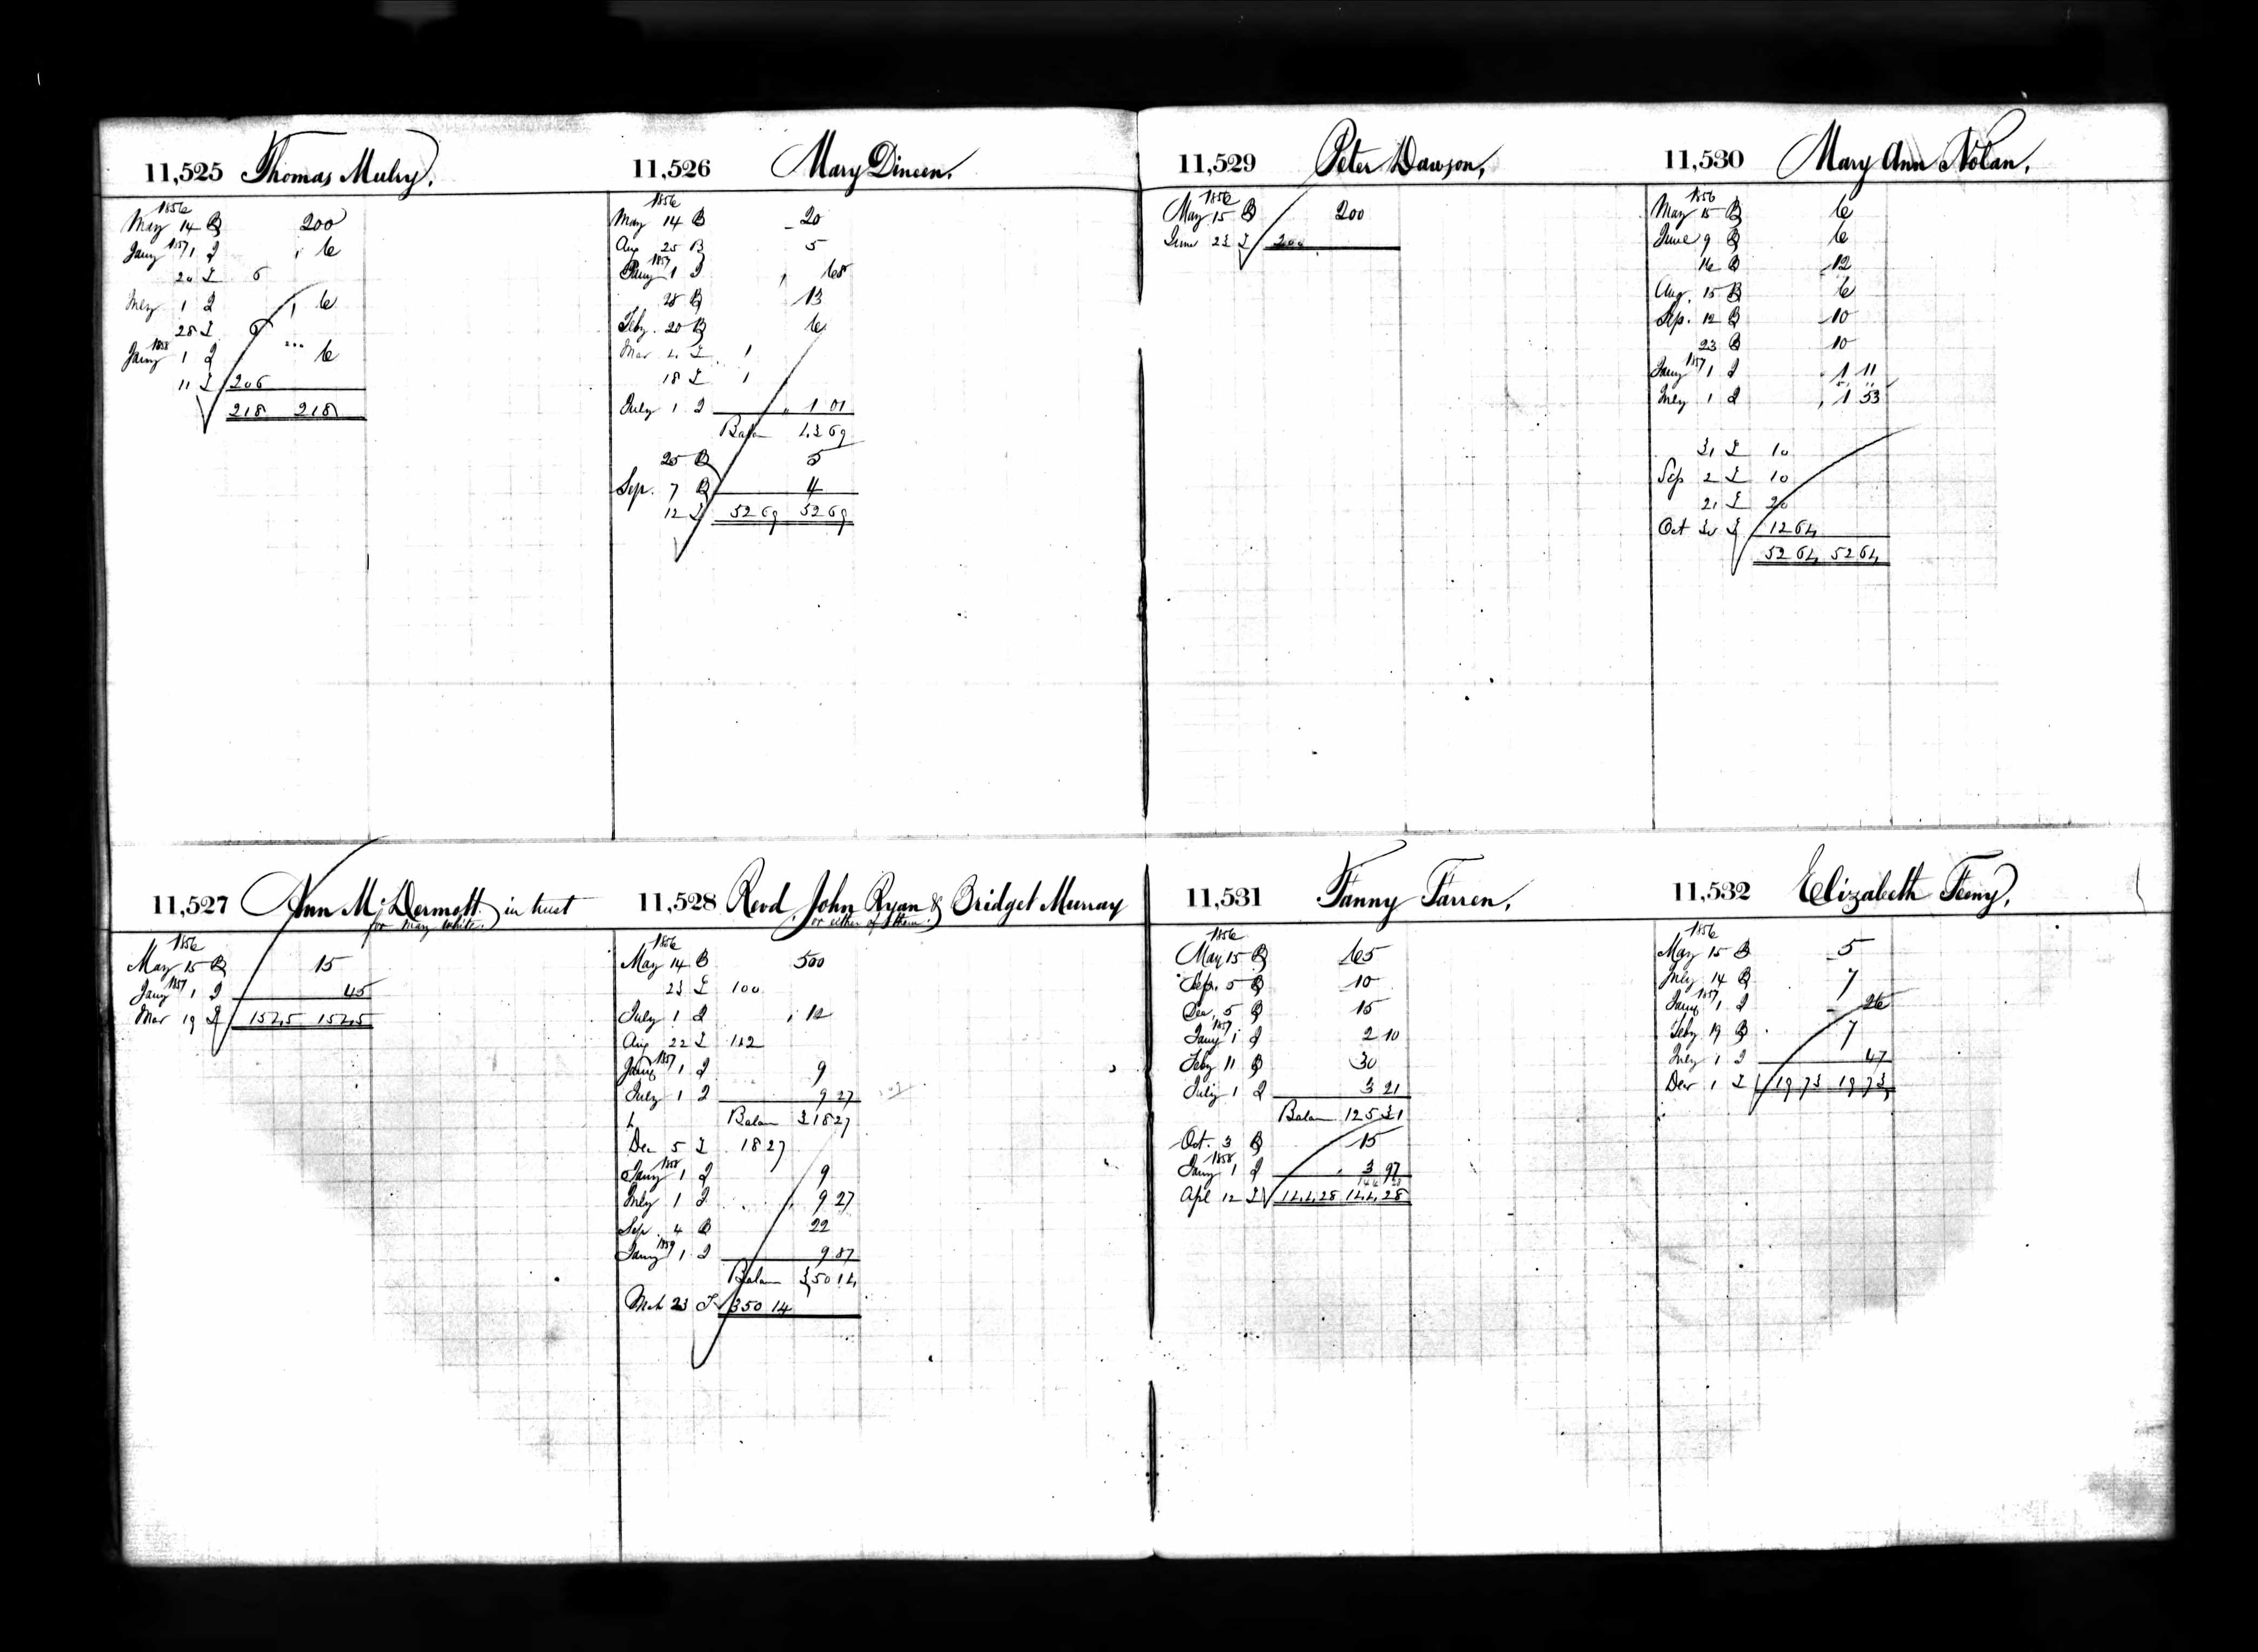 11,525 Thomas Mulry.
1856
May 14 B 200
Jany 1857 1 I 6
20 L 6
July 1 I 6
28 L 6
Jany 1858 1 I 6
11 L 206
218 218
11,526 Mary Dineen.
1856
May 14 B 20
Aug 25 B 5
Jany 1857 1 I 68
28 B 13
Feby. 20 B 6
Mar 4 L 1
18 L 1
July 1 I 1 01
Balan 43 69
25 B 5
Sep. 7 B 4
12 L 52 69 52 69
11,527 Ann McDermott in trust
for Mary White.
1856
May 15 B 15
Jany 1857 1 I 45
Mar 19 L 15 45 15 45
11,528 Revd John Ryan & Bridget Murray
or either of them.
1856
May 14 B 500
23 L 100
July 1 I 12
Aug 22 L 112
Jany 1857 1 I 9
July 1 I 9 27
Balan 318 27
Dec 5 L 18 27
Jany 1858 1 I 9
July 1 I 9 27
Sep. 4 B 22
Jany 1859 1 I 9 87
Balan 350 14
Mch 23 L 350 14
11,529 Peter Dawson,
1856
May 15 B 200
June 23 L 200
11,530 Mary Ann Nolan,
1856
May 15 B 6
June 9 B 6
16 B 12
Aug. 15 B 6
Sep. 12 B 10
23 B 10
Jany 1857 1 I 1 11
July 1 I 1 53
31 L 10
Sep 2 L 10
21 L 20
Oct 30 L 12 64
52 64 52 64
11,531 Fanny Farren,
1856
May 15 B 65
Sep. 5 B 10
Dec. 5 B 15
Jany 1857 1 I 2 10
Feby 11 B 30
July 1 I 3 21
Balan 125 31
Oct. 3 B 15
Jany 1858 1 I 3 97
144 28
Apl 12 L 144 28 144 28
11,532 Elizabeth Feeny,
1856
May 15 B 5
July 14 B 7
Jany 1857 1 I 26
Feby 19 B 7
July 1 I 47
Dec 1 L 19 73 19 73